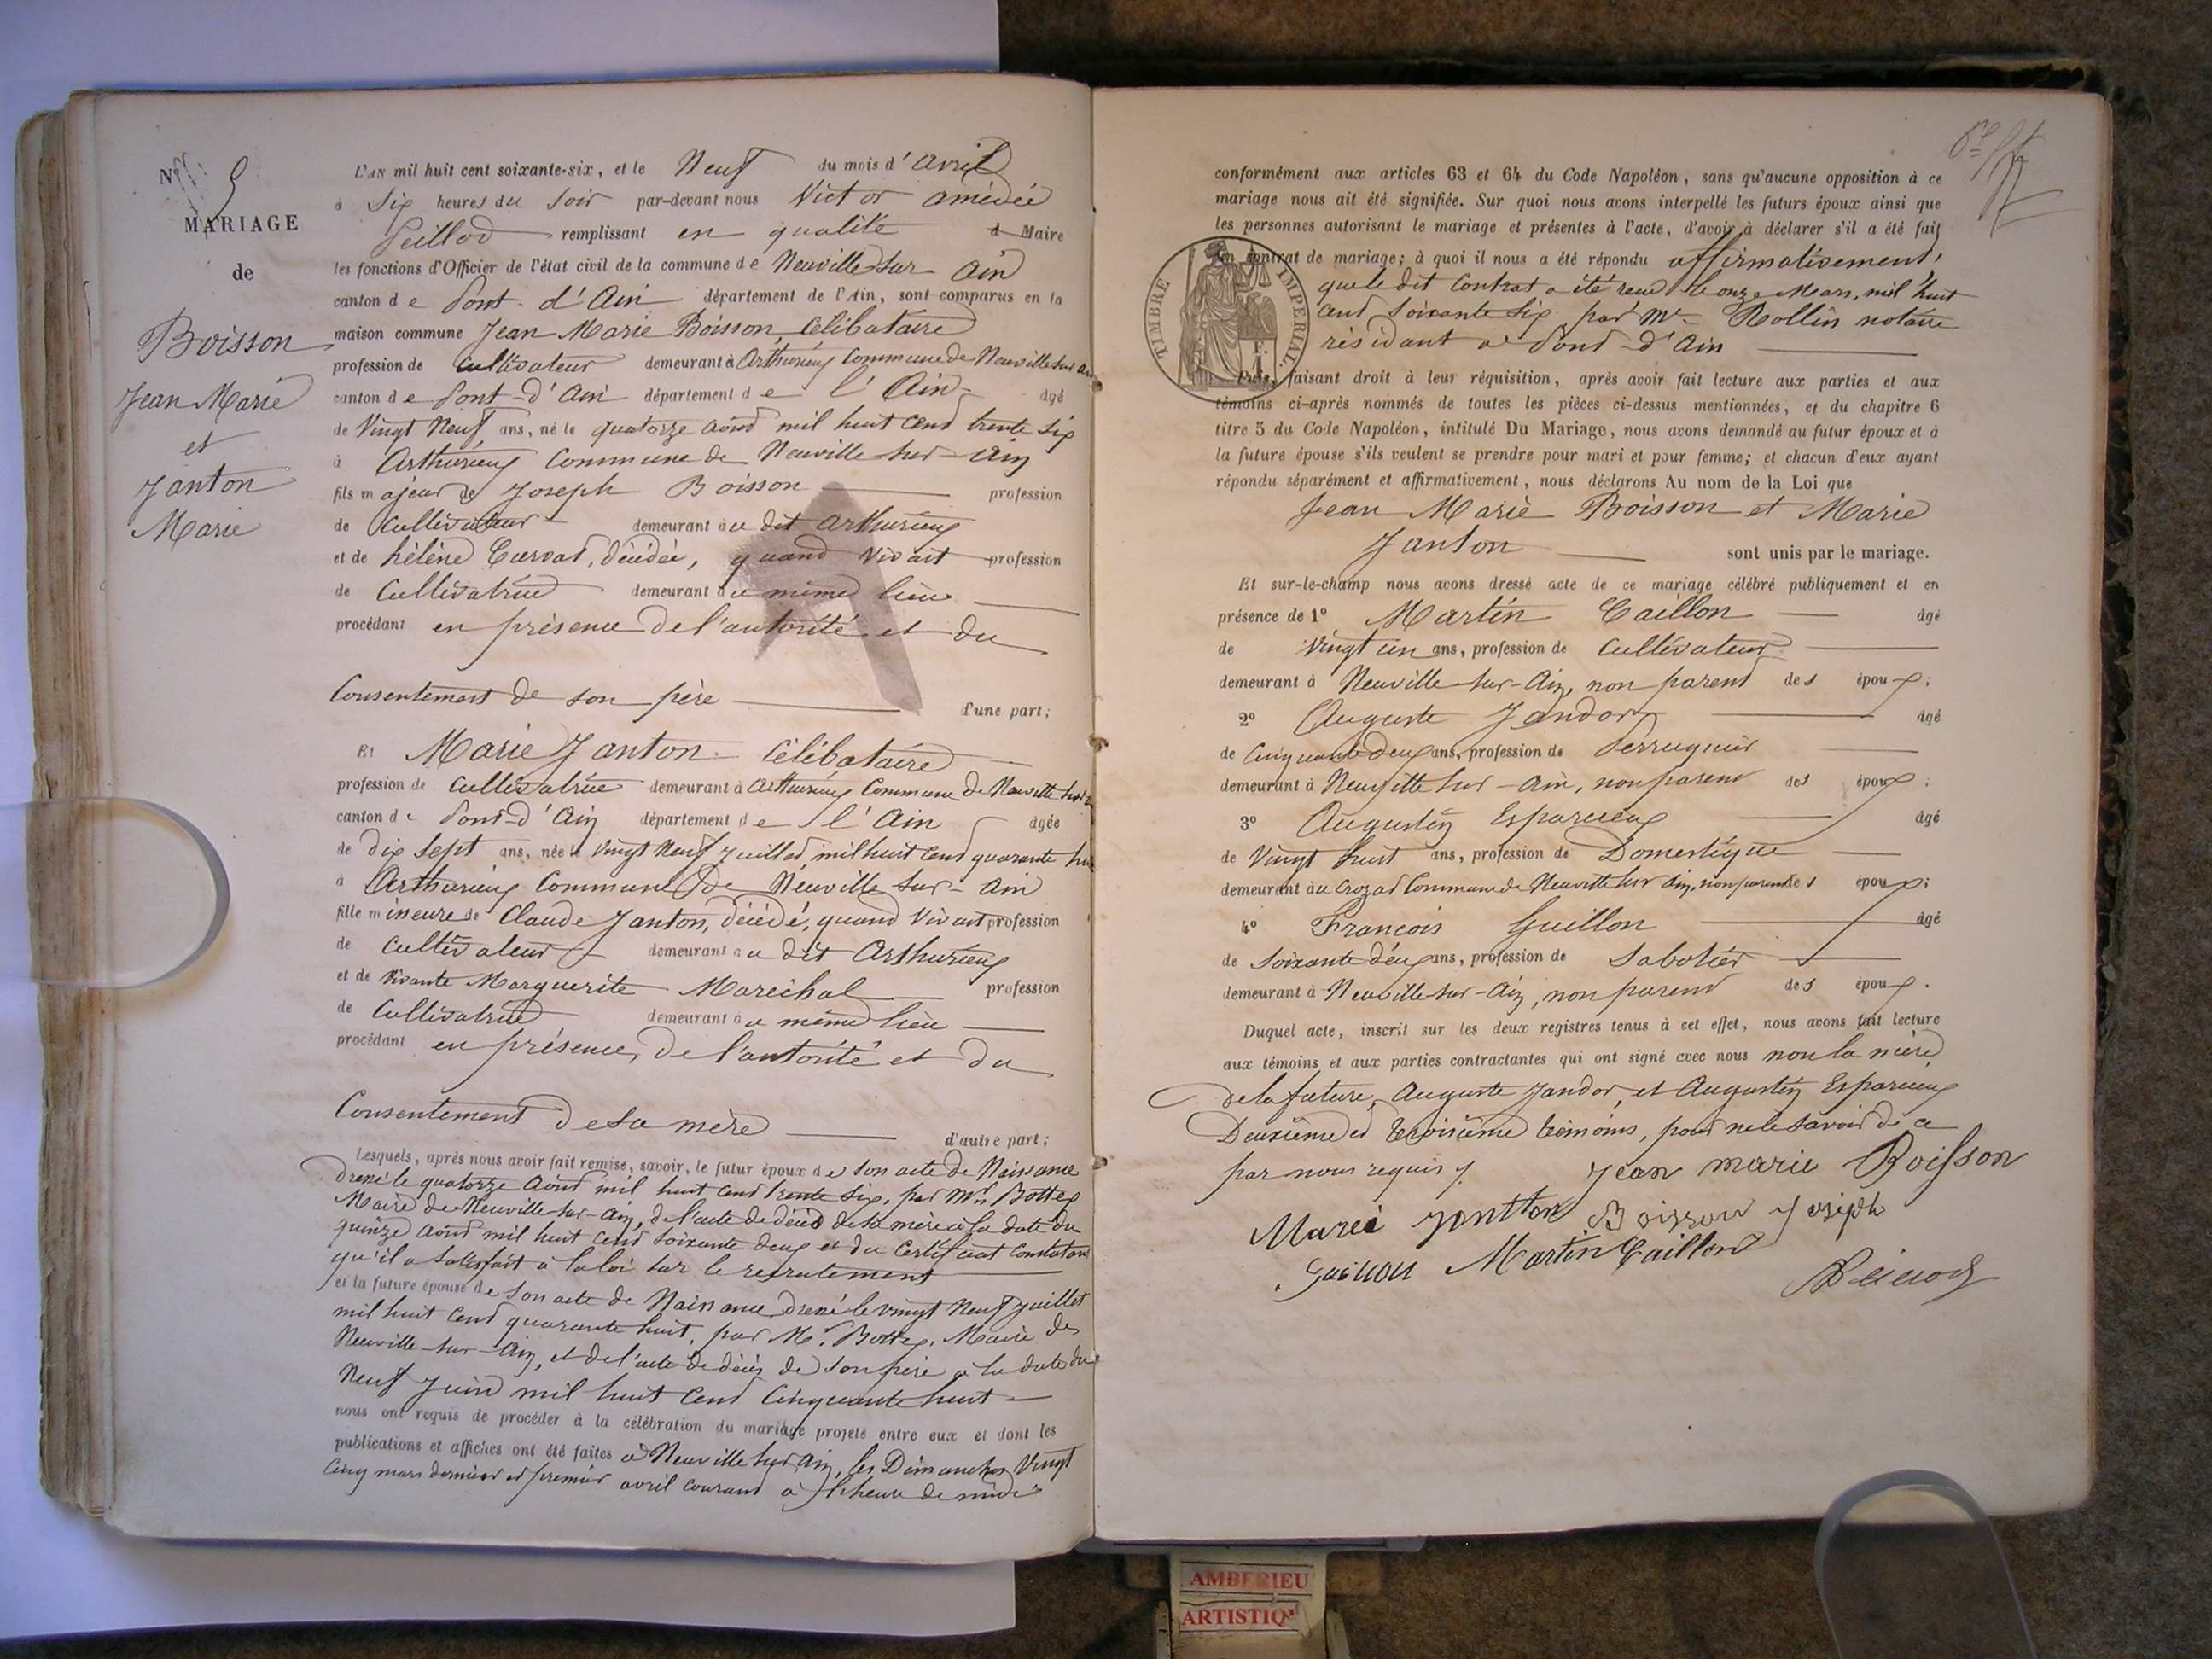 N° 5
MARIAGE
de
Boisson
Jean Marie
et
Janton
Marie
L'AN mil huit cent soixante-six, et le Neuf du mois d'avril
à Six heures du Soir par-devant nous Victor amédée
Peillod remplissant en qualité d Maire
les fonctions d'Officier de l'état civil de la commune de Neuville Sur Ain
canton de Pont-d'Ain département de l'Ain, sont comparus en la
maison commune Jean Marie Boisson, Célibataire
profession de Cultivateur demeurant à Arthurieux Commune de Neuville sur Ain
canton de Pont-d'Ain département de l'Ain âgé
de Vingt Neuf ans, né le quatorze août mil huit Cent trente Six
à Arthurieux Commune de Neuville-sur-Ain
fils majeur de Joseph Boisson profession
de Cultivateur demeurant au dit Arthurieux
et de hélène Curvat, décédée, quand vivait profession
de Cultivatrice demeurant au même lieu
procédant en présence de l'autorité et du
Consentement de son père d'une part;
Et Marie Janton Célibataire
profession de Cultivatrice demeurant à Arthurieux Commune de Neuville sur
canton de Pont-d'Ain département de l'Ain âgée
de dix Sept ans, née le Vingt Neuf Juillet mil huit Cent quarante huit
à Arthurieux Commune de Neuville Sur-Ain
fille mineure de Claude Janton, décédé, quand Vivait profession
de Cultivateur demeurant au dit Arthurieux
et de vivante Marguerite Maréchal profession
de Cultivatrice demeurant au même lieu
procédant en présence, de l'autorité et du
Consentement de sa mère d'autre part;
Lesquels, après nous avoir fait remise, savoir, le futur époux de son acte de Naissance
dressé le quatorze Août mil huit Cent trente Six, par Mr Bottex
Maire de Neuville-sur-Ain, de l'acte de décès de sa mère à la date du
quinze Août mil huit Cent Soixante deux et du Certificat Constatant
qu'il a satisfait à la loi sur le recrutement
et la future épouse de son acte de Naissance dressé le vingt Neuf Juillet
mil huit Cent quarante huit, par Mr Bottex, Maire de
Neuville-sur-Ain, et de l'acte de décès de son père à la date du
Neuf Juin mil huit Cent Cinquante huit
nous ont requis de procéder à la célébration du mariage projeté entre eux et dont les
publications et affiches ont été faites à Neuville sur Ain, les Dimanches Vingt
Cinq mars dernier et premier avril courant à l'heure de midi
conformément aux articles 63 et 64 du Code Napoléon, sans qu'aucune opposition à ce
mariage nous ait été signifiée. Sur quoi nous avons interpellé les futurs époux ainsi que
les personnes autorisant le mariage et présentes à l'acte, d'avoir à déclarer s'il a été fait
un contrat de mariage; à quoi il nous a été répondu affirmativement,
que le dit Contrat a été reçu le onze Mars, mil huit
cent Soixante Six par Me Rollin notaire
résidant à Pont-d'Ain
TIMBRE IMPÉRIAL
Puis, faisant droit à leur réquisition, après avoir fait lecture aux parties et aux
témoins ci-après nommés de toutes les pièces ci-dessus mentionnées, et du chapitre 6
titre 5 du Code Napoléon, intitulé Du Mariage, nous avons demandé au futur époux et à
la future épouse s'ils veulent se prendre pour mari et pour femme; et chacun d'eux ayant
répondu séparément et affirmativement, nous déclarons Au nom de la Loi que
Jean Marie Boisson et Marie
Janton sont unis par le mariage.
Et sur-le-champ nous avons dressé acte de ce mariage célébré publiquement et en
présence de 1° Martin Caillon âgé
de Vingt un ans, profession de Cultivateur
demeurant à Neuville-sur-Ain, non parent des époux;
2° Auguste Jandor âgé
de Cinquante deux ans, profession de Perruquier
demeurant à Neuville sur-Ain, non parent des époux;
3° Augustin Esparcieux âgé
de Vingt huit ans, profession de Domestique
demeurant au Crozat Commune de Neuville sur Ain, non parent des époux;
4° Francois Guillon âgé
de Soixante deux ans, profession de Sabotier
demeurant à Neuville-sur-Ain, non parent des époux.
Duquel acte, inscrit sur les deux registres tenus à cet effet, nous avons fait lecture
aux témoins et aux parties contractantes qui ont signé avec nous non la mère
de la future, Auguste Jandor, et Augustin Esparcieux
Deuxième et troisième témoins, pour ne le savoir de ce
par nous requis
Jean marie Boisson
Marie Jontton Boisson Joseph
Guillon Martin Caillon
AMBERIEU
ARTISTIQ